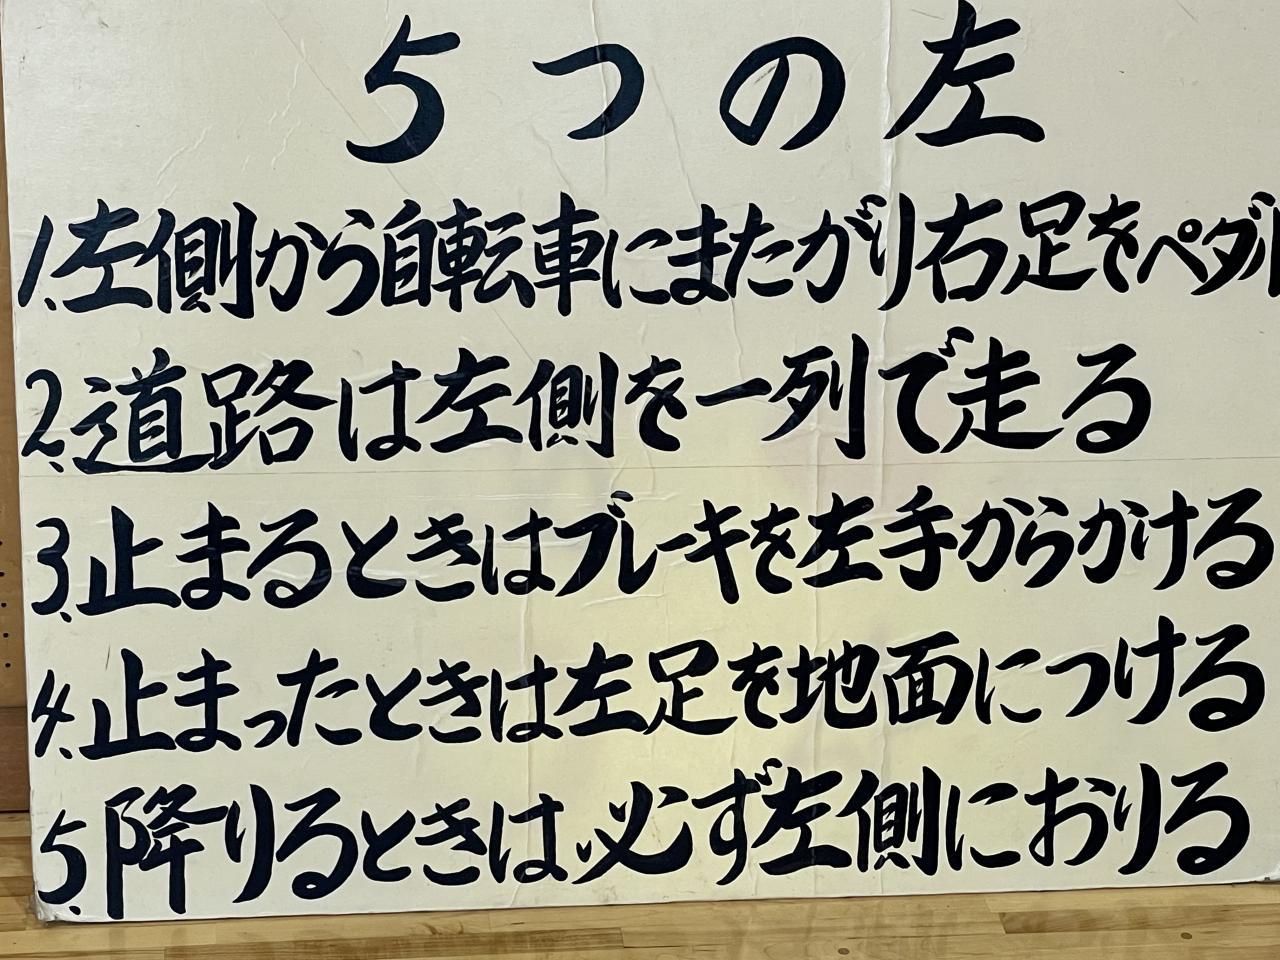 5つの左
1.左側から自転車にまたがり右足をペダル
2.道路は左側を一列で走る
3.止まるときはブレーキを左手からかける
4.止まったときは左足を地面につける
5.降りるときは必ず左側におりる